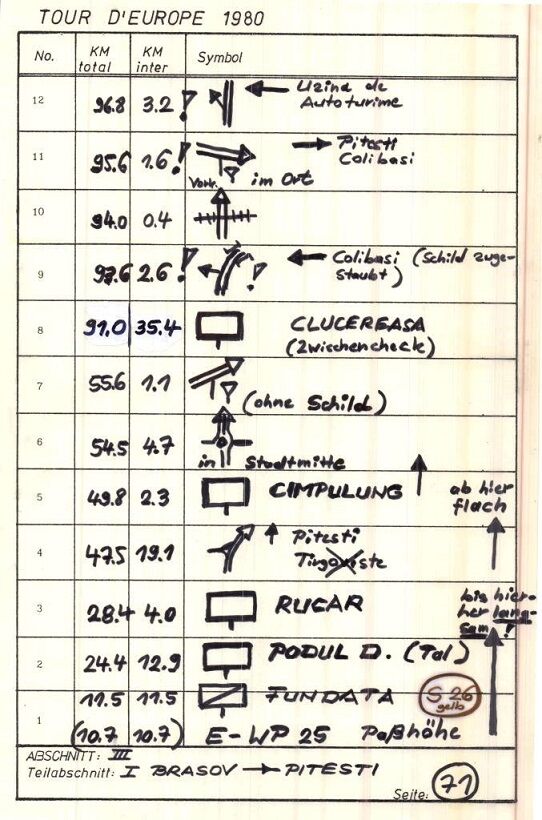 TOUR D'EUROPE 1980
No. KM total KM inter Symbol
12 96.8 3.2 ! Uzina de Autoturime
11 95.6 1.6 ! Pitesti Colibasi
Vorw. im Ort
10 94.0 0.4
9 93.6 2.6 ! ! Colibasi (Schild zuge-
staubt)
8 91.0 35.4 CLUCEREASA
(Zwischencheck)
7 55.6 1.1
(ohne Schild)
6 54.5 4.7
in Stadtmitte
5 49.8 2.3 CIMPULUNG ab hier
flach
4 47.5 19.1 Pitesti
Tirgoviste
3 28.4 4.0 RUCAR bis hier-
her lang-
sam!
2 24.4 12.9 PODUL D. (Tal)
11.5 11.5 FUNDATA S 26
gelb
1 (10.7 10.7) E-WP 25 Paßhöhe
ABSCHNITT: III
Teilabschnitt: I BRASOV → PITESTI
Seite: 71